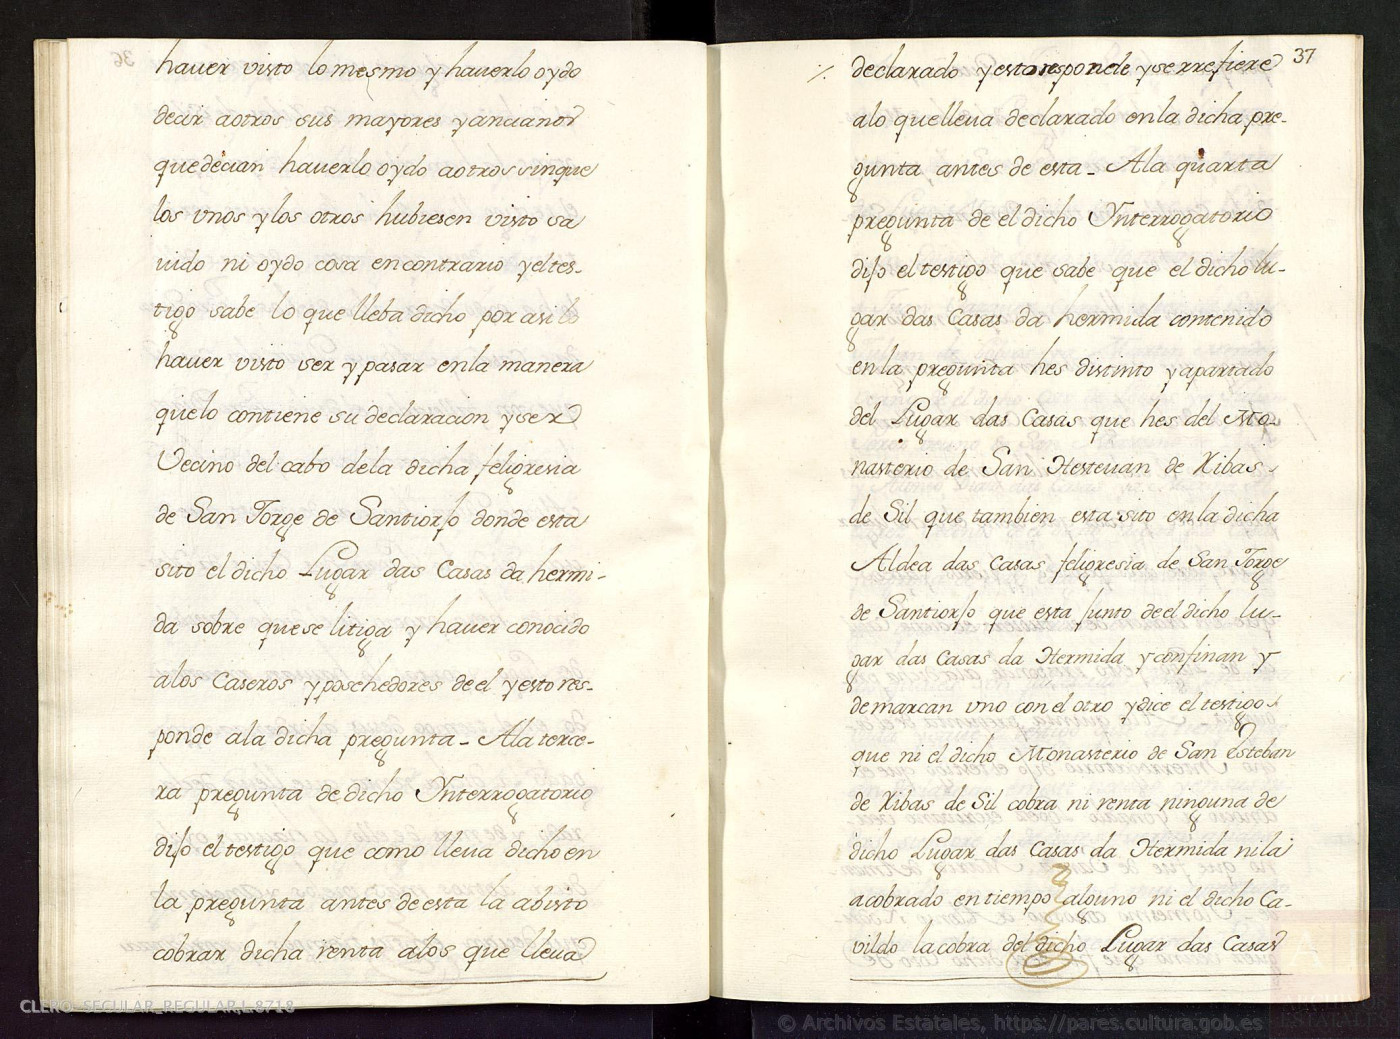 haver visto lo mesmo y haverlo oydo
decir aotros sus mayores yancianos
quedecian haverlo oydo aotros sinque
los vnos y los otros hubiesen visto sa
uido ni oydo cosa encontrario yeltes-
tigo sabe lo que lleba dicho por asi lo
hauer visto ser y pasar enla manera
quelo contiene su declaracion yser
Vecino del cabo dela dicha feligresia
de San Jorge de Santiorjo donde esta
sito el dicho Lugar das Casas da hermi-
da sobre quese litiga y hauer conocido
alos Caseros yposehedores deel yestores-
ponde ala dicha pregunta - Ala terce-
ra pregunta de dicho Ynterrogatorio
dijo el testigo que como lleua dicho en
la pregunta antes de esta la abisto
cobrar dicha renta alos que lleua
37
declarado yestoresponde yserrefiere
alo quelleua declarado enla dicha pre-
gunta antes de esta - Ala quarta
pregunta de el dicho Ynterrogatorio
dijo el testigo que sabe que el dicho lu-
gar das Casas da hermida contenido
enla pregunta hes distinto yapartado
del Lugar das Casas que hes del Mo-
nasterio de San Hesteuan de Ribas
de Sil que tambien esta sito enla dicha
Aldea das Casas feligresia de San Jorge
de Santiorjo que esta junto deel dicho lu-
gar das Casas da Hermida yconfinan y
demarcan vno con el otro ydice el testigo
que ni el dicho Monasterio de San Esteban
de Ribas de Sil cobra ni renta ninguna de
dicho Lugar das Casas da Hermida nila
acobrado en tiempo alguno ni el dicho Ca-
vildo lacobra del dicho Lugar das Casas
CLERO-SECULAR_REGULAR,L.8718
© Archivos Estatales, https://pares.cultura.gob.es
ARCHIVOS
ESTATALES